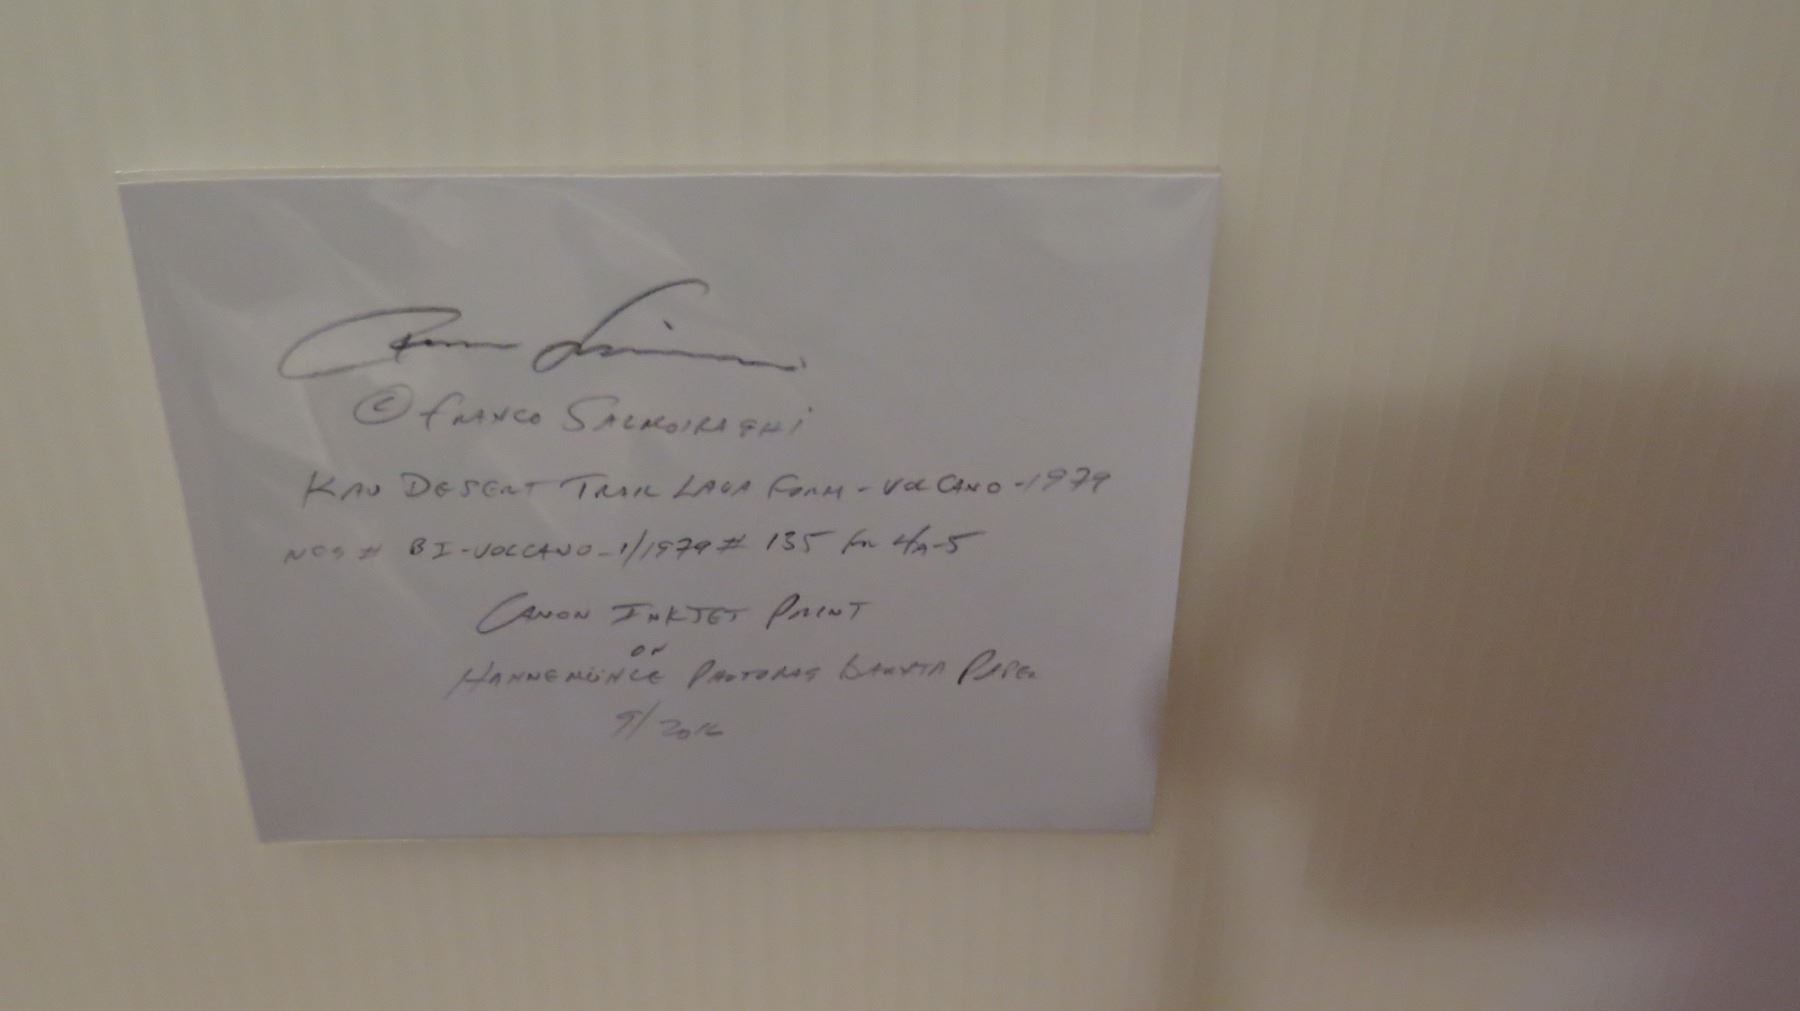 © FRANCO SALMOIRAGHI
KAU DESERT TRAIL LAVA FORM - VOLCANO - 1979
NEG # BI-VOLCANO-1/1979 # 135 for 4A-5
CANON INKJET PRINT
ON
HANNEMÜHLE PHOTORAG BARYTA PAPER
9/2016